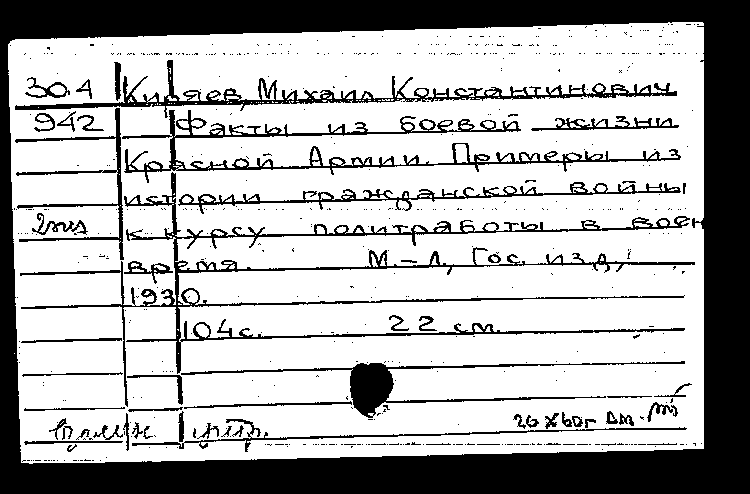 304 Киряев, Михаил Константинович
942 Факты из боевой жизни
Красной Армии. Примеры из
истории гражданской войны
2экз к курсу политработы в воен
время. М.-Л, Гос. изд,
1930.
104с. 22 см.
26 X 60г